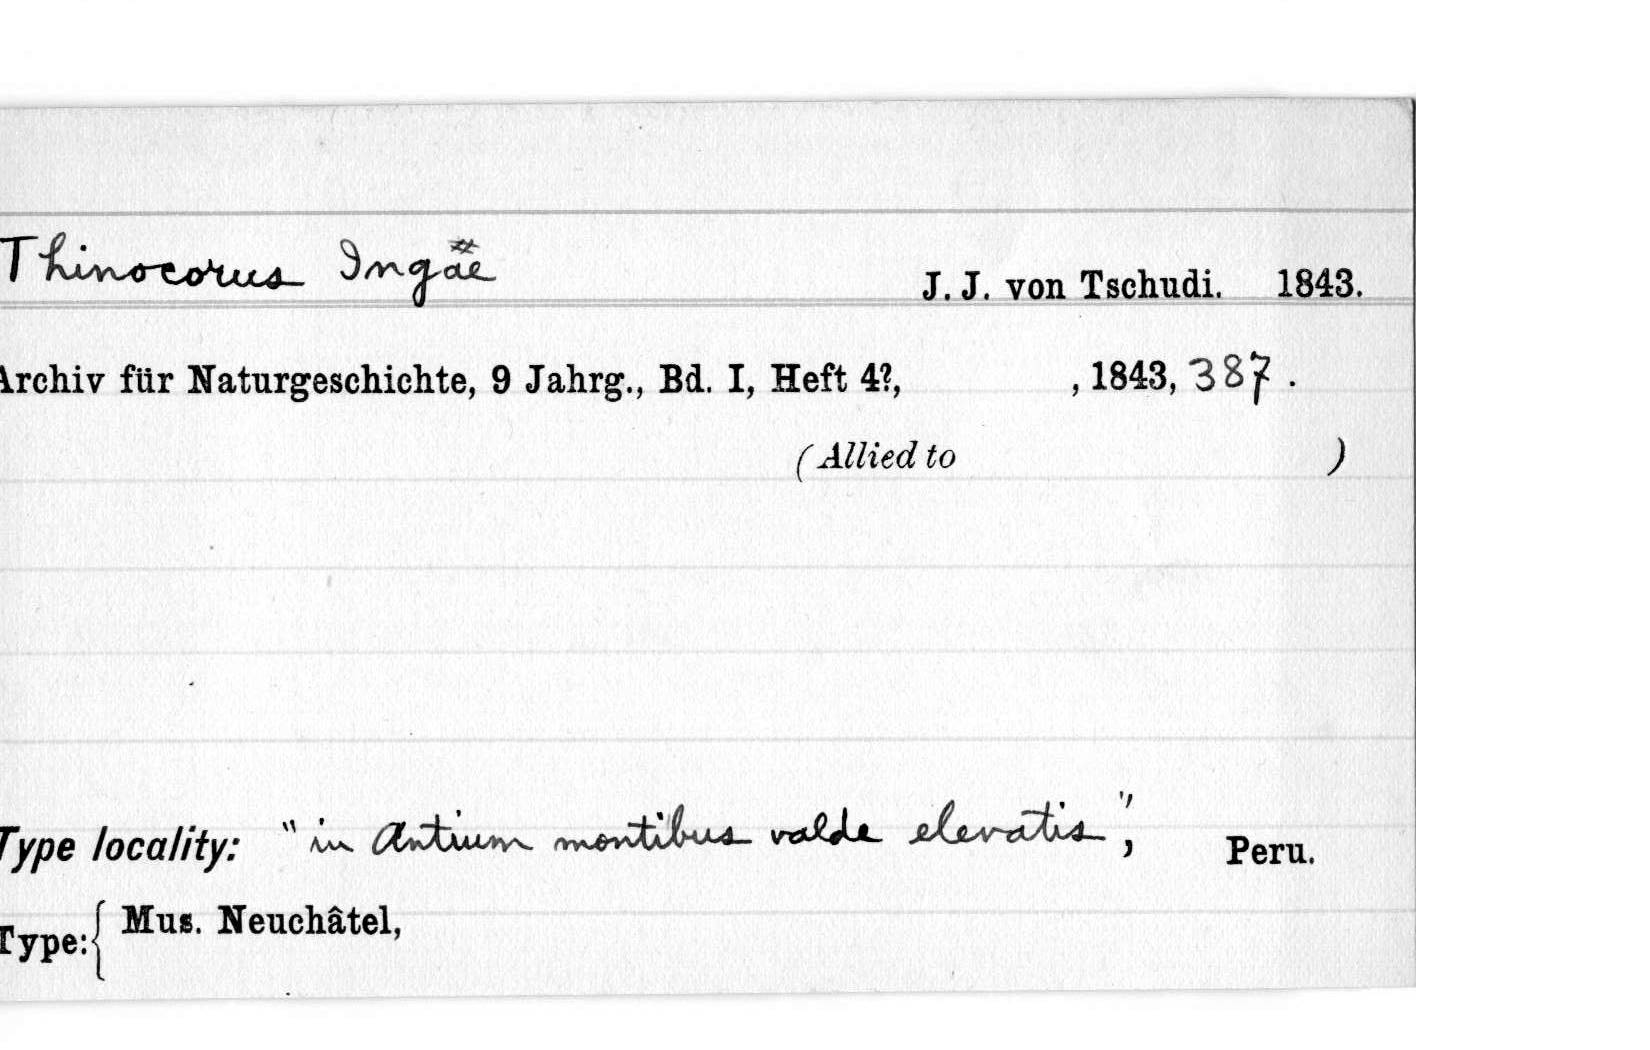 Thinocorus Ingäe
J. J. von Tschudi. 1843.
Archiv für Naturgeschichte, 9 Jahrg., Bd. I, Heft 4?, , 1843, 387.
(Allied to )
Type locality: "in Antium montibus valde elevatis", Peru.
Type: { Mus. Neuchâtel,